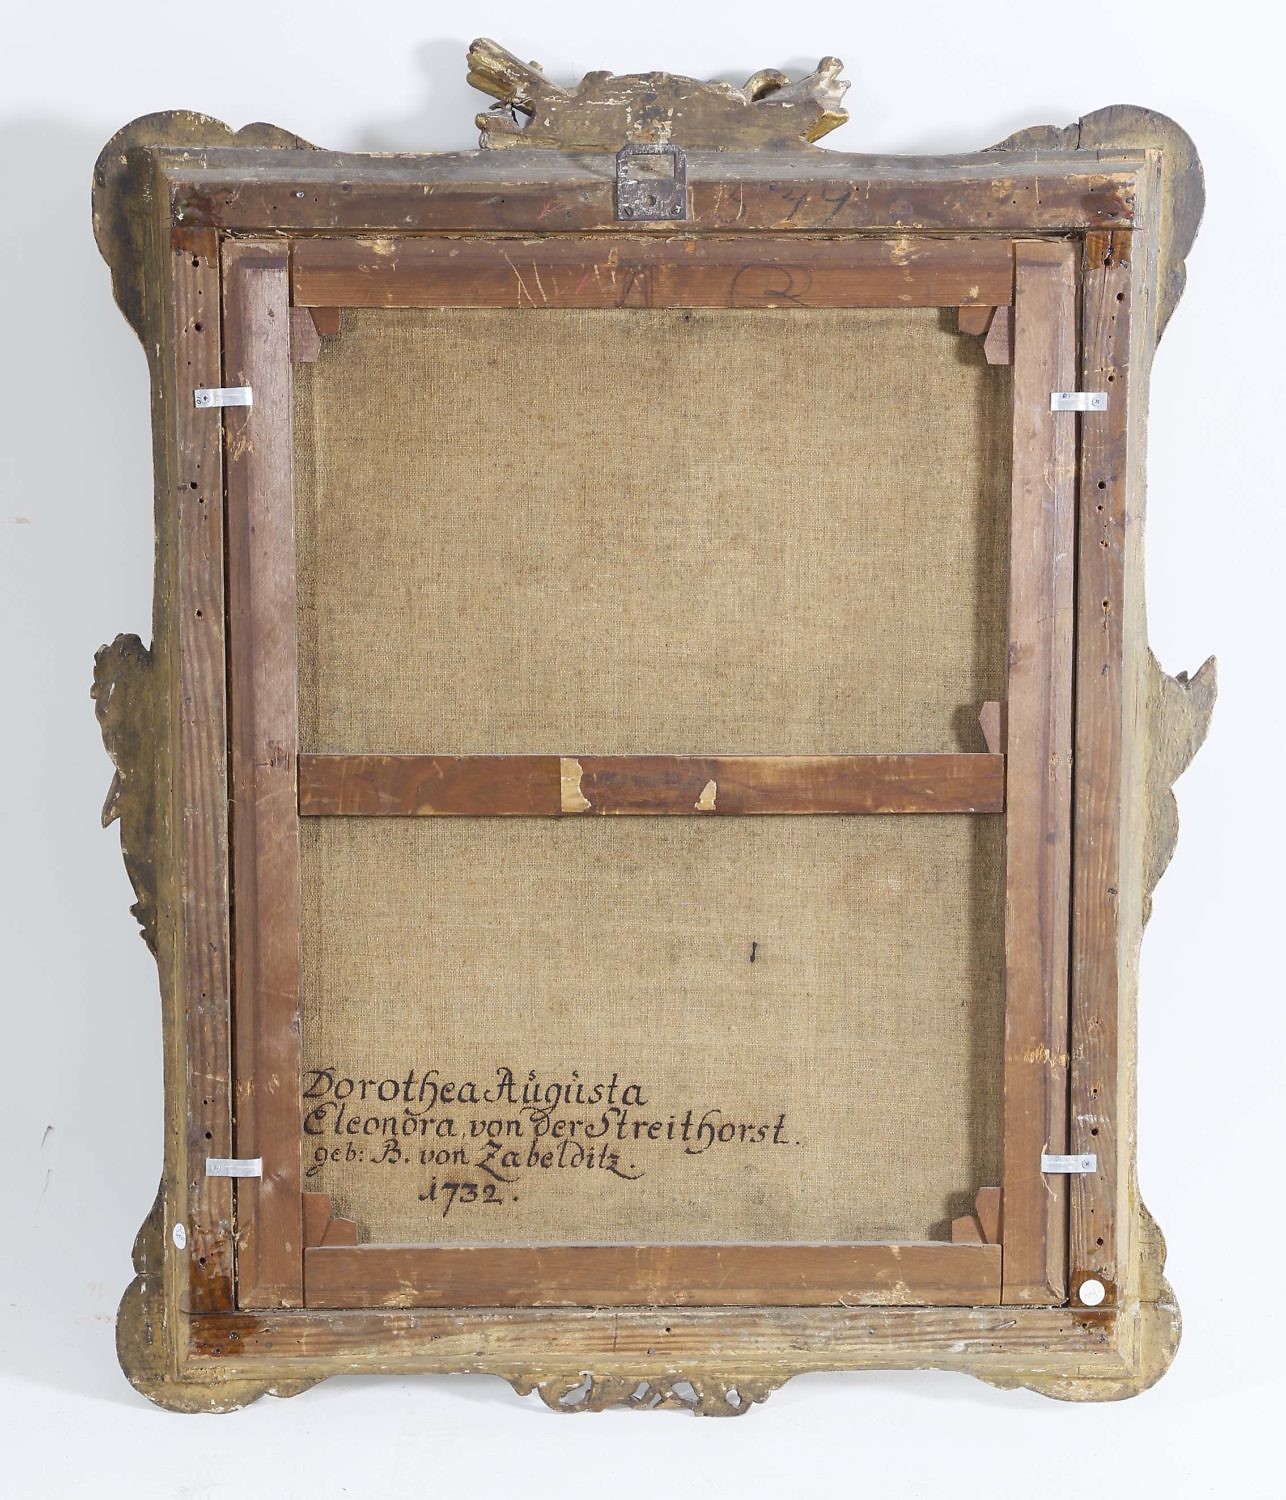 Dorothea Aŭgŭsta
Eleonora, von der Streithorst.
geb: B. von Zabelditz.
1732.